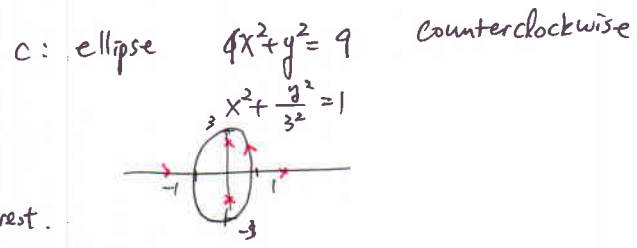 c: ellipse 9x²+y²= 9 counterclockwise
x²+ y²/3² =1
3
-1 1
rest.
-3